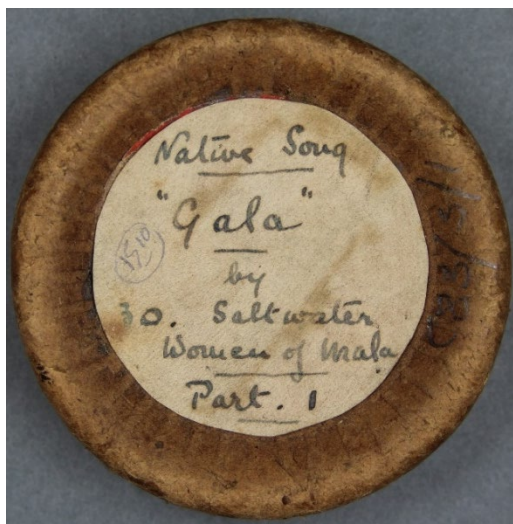 Native Song
"Gala"
by
30. Saltwater
Women of Mala
Part. 1
C23/3/1